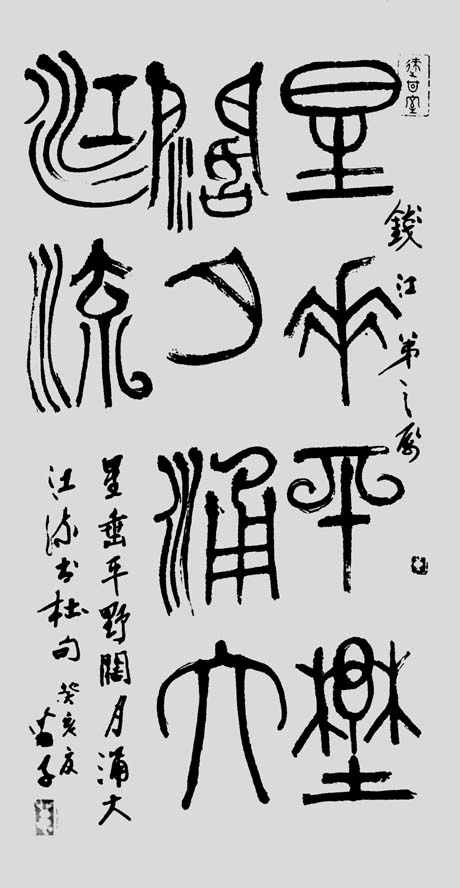 錢江弟之属
星垂平野
闊月涌大
江流
星垂平野闊月涌大
江流书杜句癸亥夏
苗子